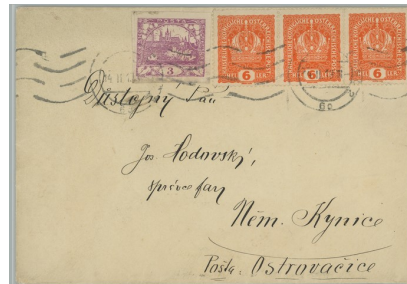 3
6
6
6
Důstojný Pan
Jos. Hodovský,
správce fary
Něm. Kynice
Pošta: Ostrovačice